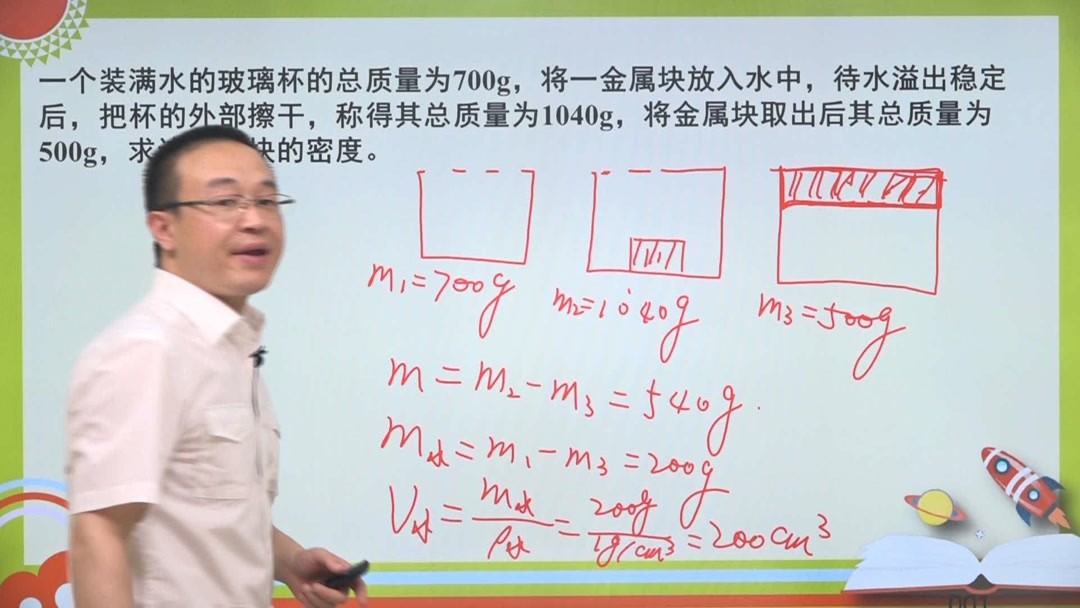 一个装满水的玻璃杯的总质量为700g，将一金属块放入水中，待水溢出稳定
后，把杯的外部擦干，称得其总质量为1040g，将金属块取出后其总质量为
500g，求 块的密度。
m₁=700g m₂=1040g m₃=500g
m=m₂-m₃=540g.
m水=m₁-m₃=200g
V水=m水/ρ水=200g/1g/cm³=200cm³